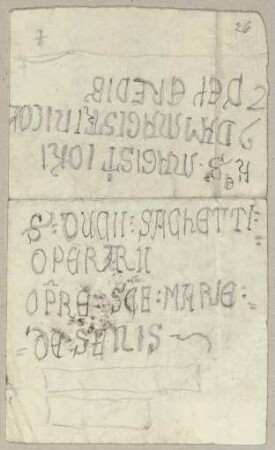 7
26
S · MAGISTI IOHI
ꝗDAM MAGISTRI NICO
DEI EREDIB
S : DUCII : SACHETTI :
OPERARII
OP̄RE : SCE : MARIE :
DE SENIS